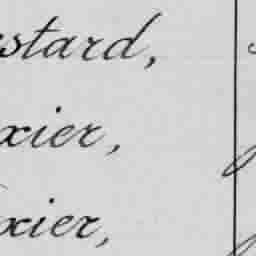 stard,
xier,
xier,